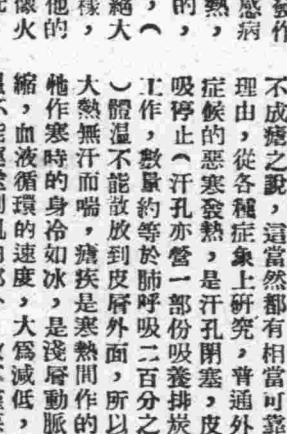 發作
感病
熱，
的，
，（
絕大
樣，
他的
像火
不成瘧之說，這當然都有相當可靠
理由，從各種症象上研究，普通外
症候的惡寒發熱，是汗孔閉塞，皮
吸停止（汗孔亦營一部份吸養排炭
工作，數量約等於肺呼吸二百分之
）體温不能放散到皮層外面，所以
大熱無汗而喘，瘧疾是寒熱間作的
牠作寒時的身冷如冰，是淺層動脈
縮，血液循環的速度，大爲減低，